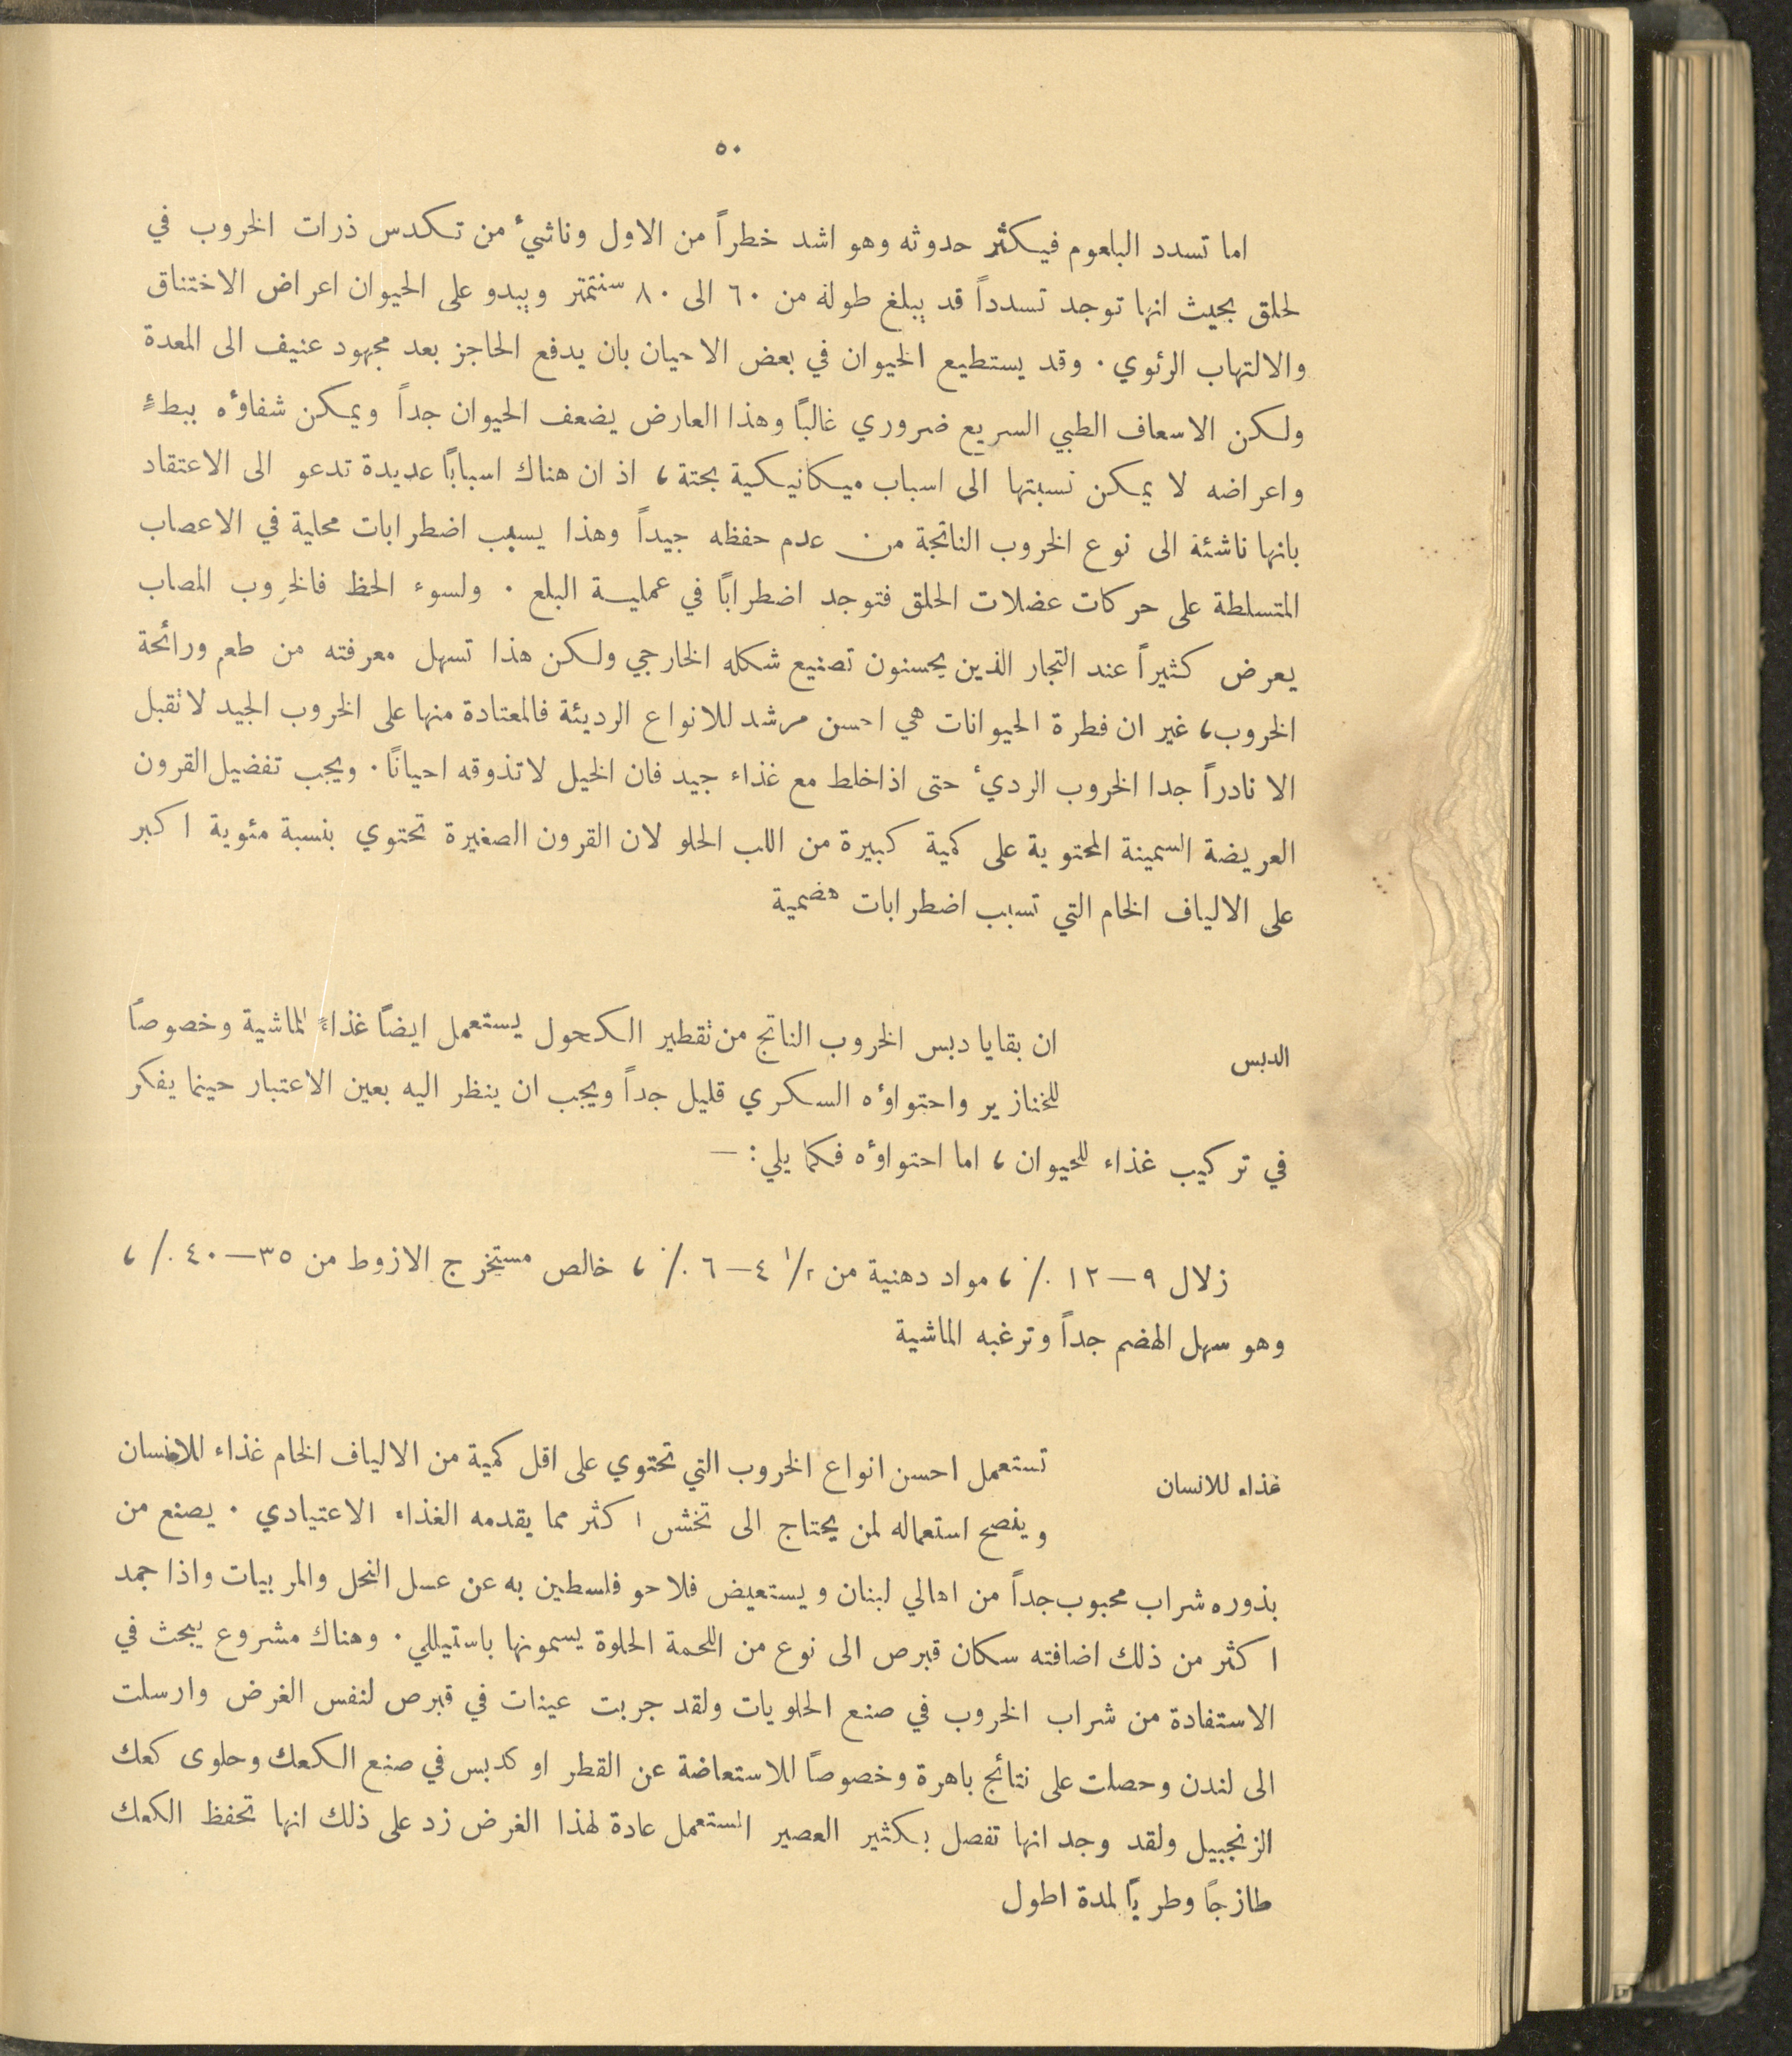 ٥٠
اما تسدد البلعوم فيكثر حدوثه وهو اشد خطراً من الاول وناشيء من تكدس ذرات الخروب في
لحلق بحيث انها توجد تسدداً قد يبلغ طوله من ٦٠ الى ٨٠ سنتمتر ويبدو على الحيوان اعراض الاختناق
والالتهاب الرئوي . وقد يستطيع الحيوان في بعض الاحيان بان يدفع الحاجز بعد مجهود عنيف الى المعدة
ولكن الاسعاف الطبي السريع ضروري غالباً وهذا العارض يضعف الحيوان جداً ويمكن شفاؤه ببطءٍ
واعراضه لا يمكن نسبتها الى اسباب ميكانيكية بحتة ، اذ ان هناك اسباباً عديدة تدعو الى الاعتقاد
بانها ناشئة الى نوع الخروب الناتجة من عدم حفظه جيداً وهذا يسبب اضطرابات محلية في الاعصاب
المتسلطة على حركات عضلات الحلق فتوجد اضطراباً في عملية البلع . ولسوء الحظ فالخروب المصاب
يعرض كثيراً عند التجار الذين يحسنون تصنيع شكله الخارجي ولكن هذا تسهل معرفته من طعم ورائحة
الخروب، غير ان فطرة الحيوانات هي احسن مرشد للانواع الرديئة فالمعتادة منها على الخروب الجيد لا تقبل
الا نادراً جدا الخروب الرديء حتى اذا خلط مع غذاء جيد فان الخيل لا تذوقه احياناً . ويجب تفضيل القرون
العريضة السمينة المحتوية على كمية كبيرة من اللب الحلو لان القرون الصغيرة تحتوي بنسبة مئوية اكبر
على الالياف الخام التي تسبب اضطرابات هضمية
الدبس
ان بقايا دبس الخروب الناتج من تقطير الكحول يستعمل ايضاً غذاءً لماشية وخصوصاً
للخنازير واحتواؤه السكري قليل جداً ويجب ان ينظر اليه بعين الاعتبار حينما يفكر
في تركيب غذاء للحيوان ، اما احتواؤه فكما يلي : —
زلال ٩—١٢ ٪ ، مواد دهنية من ١/٢ ٤—٦ ٪ ، خالص مستخرج الازوط من ٣٥—٤٠ ٪ ،
وهو سهل الهضم جداً وترغبه الماشية
غذاء للانسان
تستعمل احسن انواع الخروب التي تحتوي على اقل كمية من الالياف الخام غذاء للانسان
وينصح استعماله لمن يحتاج الى تخشن اكثر مما يقدمه الغذاء الاعتيادي . يصنع من
بذوره شراب محبوب جداً من اهالي لبنان ويستعيض فلاحو فلسطين به عن عسل النحل والمربيات واذا جمد
اكثر من ذلك اضافته سكان قبرص الى نوع من اللحمة الحلوة يسمونها باستيللي . وهناك مشروع يبحث في
الاستفادة من شراب الخروب في صنع الحلويات ولقد جربت عينات في قبرص لنفس الغرض وارسلت
الى لندن وحصلت على نتائج باهرة وخصوصاً للاستعاضة عن القطر او كدبس في صنع الكعك وحلوى كعك
الزنجبيل ولقد وجد انها تفصل بكثير العصير المستعمل عادة لهذا الغرض زد على ذلك انها تحفظ الكعك
طازجاً وطرياً لمدة اطول